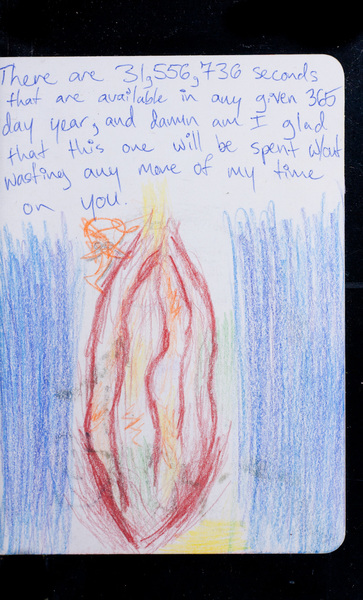 There are 31,556,736 seconds
that are available in any given 365
day year, and damn am I glad
that this one will be spent w/out
wasting any more of my time
on you.